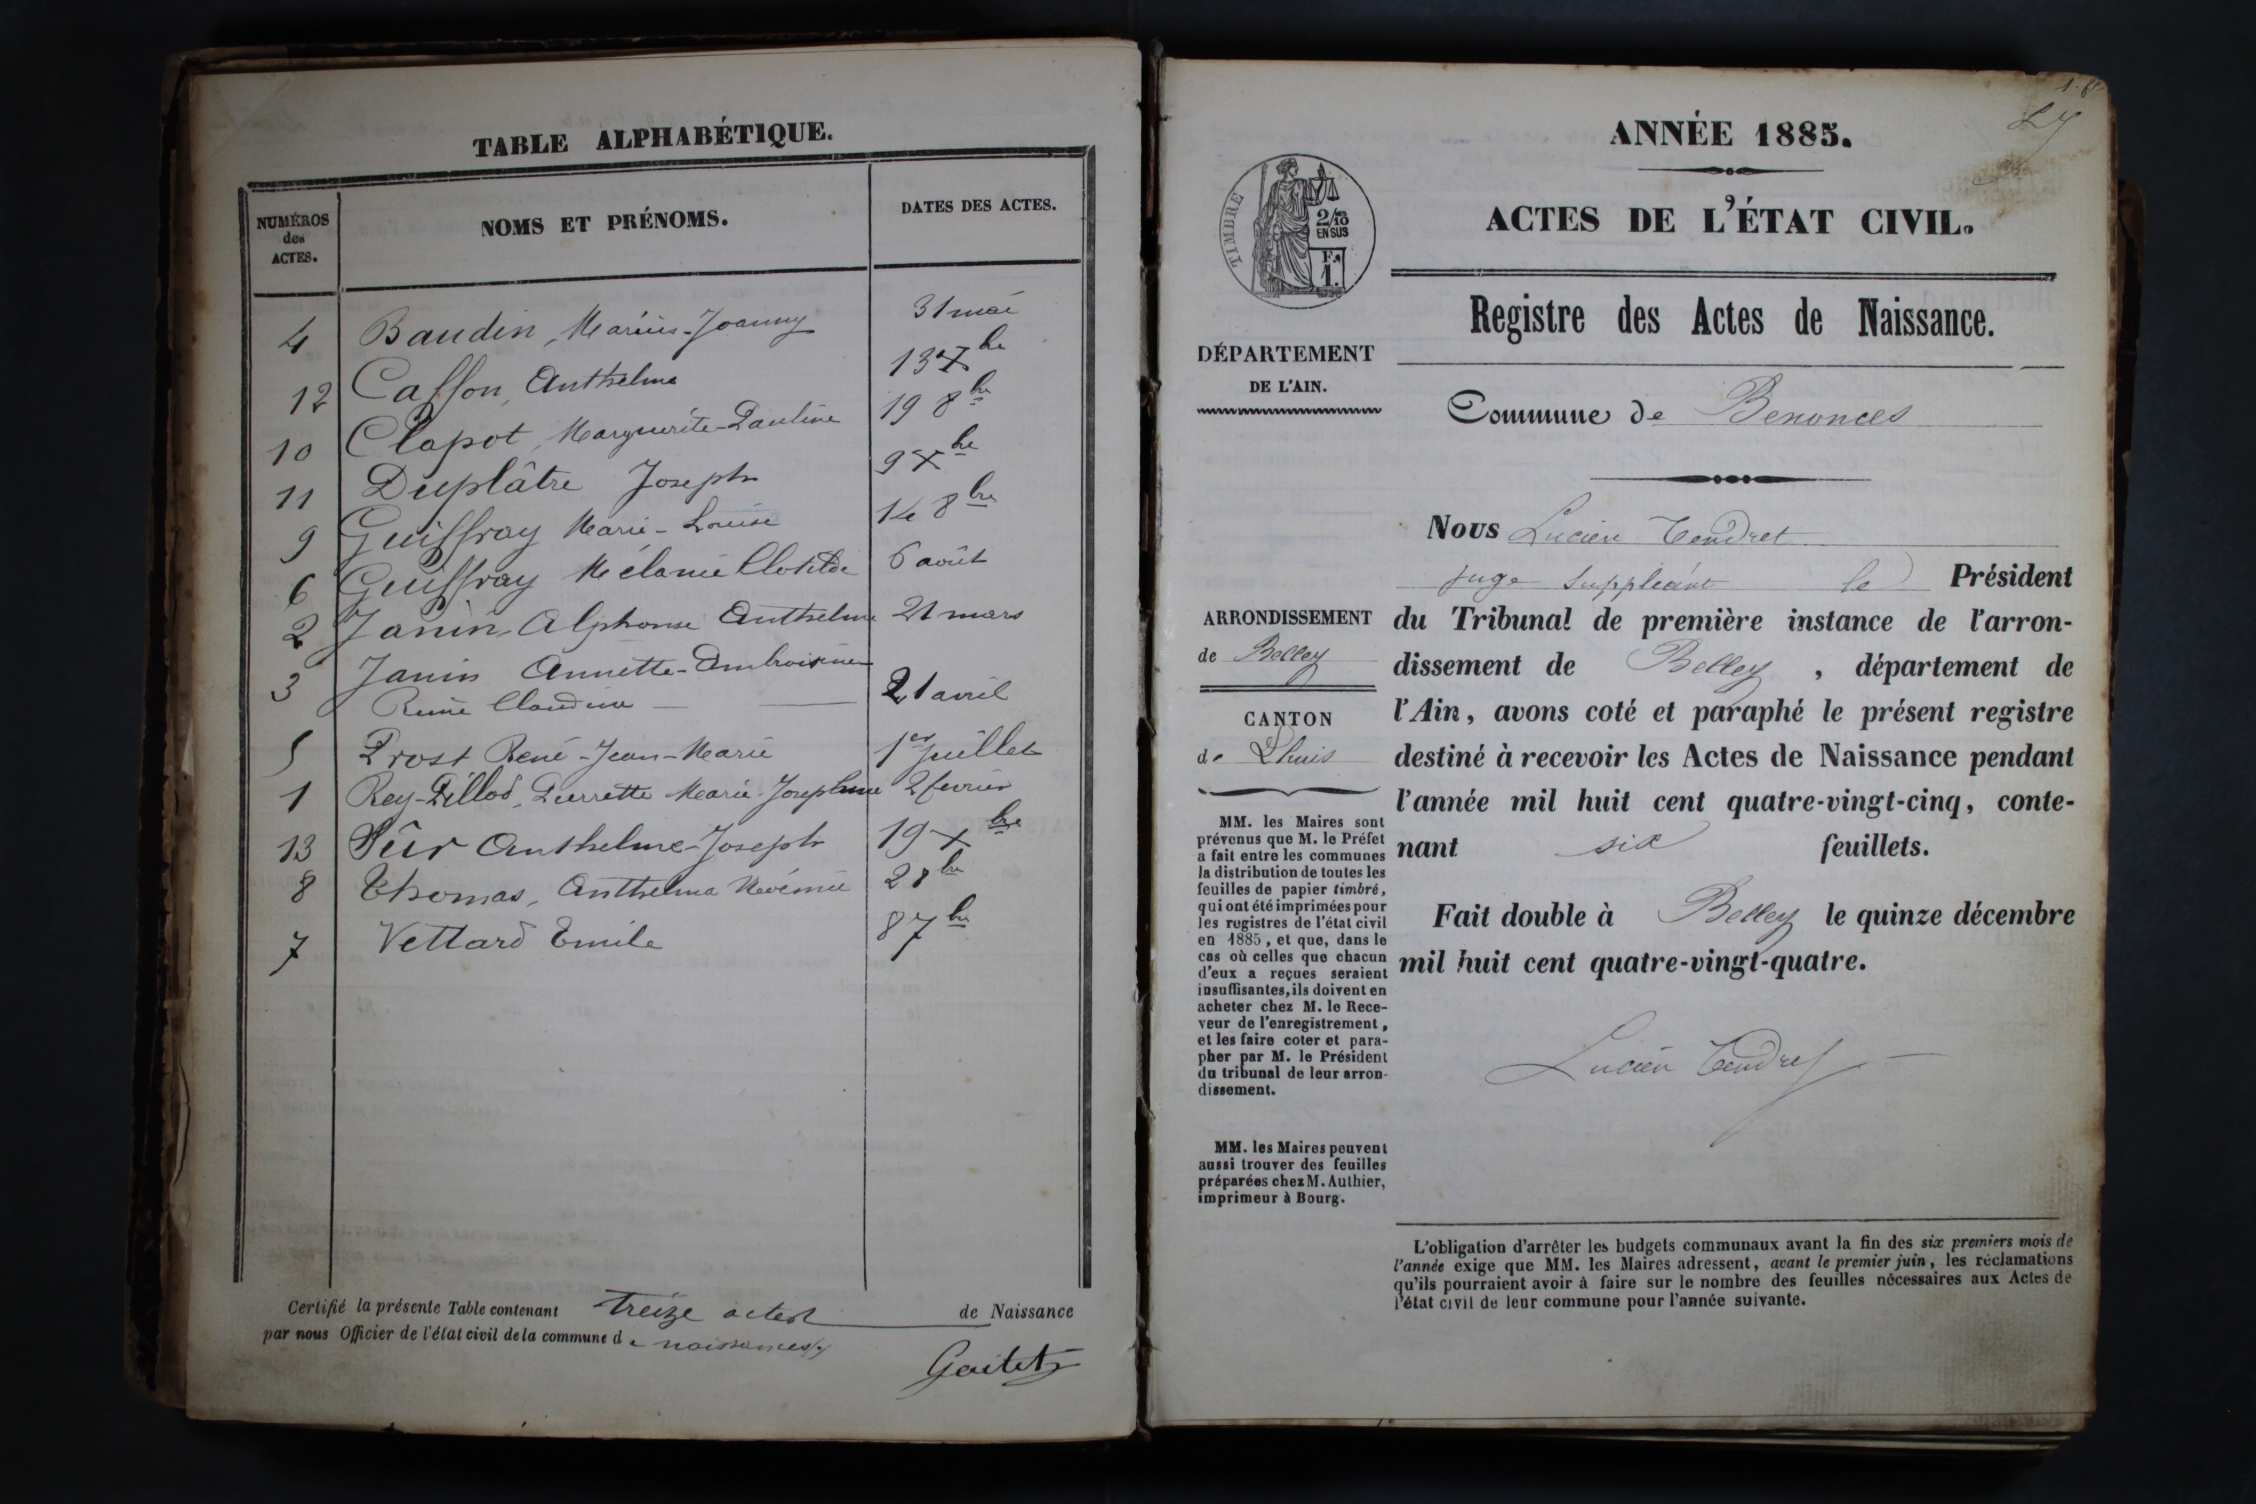 TABLE ALPHABÉTIQUE.
NUMÉROS
des
ACTES.
NOMS ET PRÉNOMS.
DATES DES ACTES.
4 Baudin, Marius-Joanny 31 mai
12 Casson, Anthelme 13 X bre
10 Clapot, Marguerite-Pauline 19 8 bre
11 Duplâtre Joseph 9 X bre
9 Guiffray Marie-Louise 14 8 bre
6 Guiffray Mélanie Clotilde 6 août
2 Janin, Alphonse Anthelme 21 mars
3 Janin Annette-Ambroisine
Reine Claudine 21 avril
5 Prost René-Jean-Marie 1er juillet
1 Rey-Pillod, Pierrette Marie-Josephine 2 fevrier
13 Sûr Anthelme-Joseph 19 X bre
8 Thomas, Anthelma Noémie 2 8 bre
7 Vettard Emile 8 7 bre
Certifié la présente Table contenant treize actes de Naissance
par nous Officier de l'état civil de la commune de naissances
1.f
LT
ANNÉE 1885.
ACTES DE L'ÉTAT CIVIL.
TIMBRE
2/10
EN SUS
F.
1.
Registre des Actes de Naissance.
DÉPARTEMENT
DE L'AIN.
Commune de Benonces
Nous Lucien Tendret
juge suppléant le Président
du Tribunal de première instance de l'arron-
dissement de Belley, département de
l'Ain, avons coté et paraphé le présent registre
destiné à recevoir les Actes de Naissance pendant
l'année mil huit cent quatre-vingt-cinq, conte-
nant six feuillets.
Fait double à Belley le quinze décembre
mil huit cent quatre-vingt-quatre.
Lucien Tendret
ARRONDISSEMENT
de Belley
CANTON
de Lhuis
MM. les Maires sont
prévenus que M. le Préfet
a fait entre les communes
la distribution de toutes les
feuilles de papier timbré,
qui ont été imprimées pour
les registres de l'état civil
en 1885, et que, dans le
cas où celles que chacun
d'eux a reçues seraient
insuffisantes, ils doivent en
acheter chez M. le Rece-
veur de l'enregistrement,
et les faire coter et para-
pher par M. le Président
du tribunal de leur arron-
dissement.
MM. les Maires peuvent
aussi trouver des feuilles
préparées chez M. Authier,
imprimeur à Bourg.
L'obligation d'arrêter les budgets communaux avant la fin des six premiers mois de
l'année exige que MM. les Maires adressent, avant le premier juin, les réclamations
qu'ils pourraient avoir à faire sur le nombre des feuilles nécessaires aux Actes de
l'état civil de leur commune pour l'année suivante.